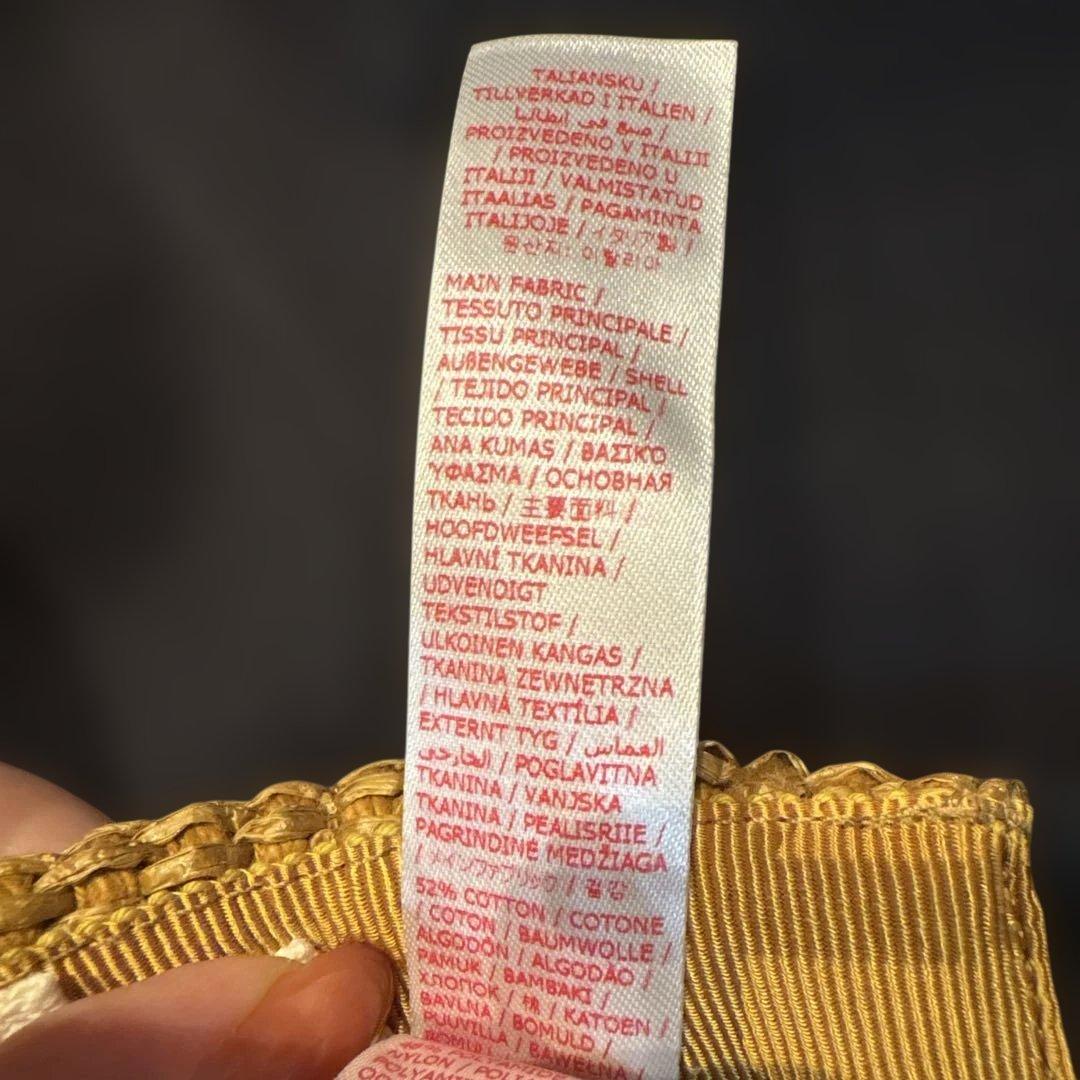 TALIANSKU /
TILLVERKAD I ITALIEN /
صنع في ايطاليا /
PROIZVEDENO V ITALIJI
/ PROIZVEDENO U
ITALIJI / VALMISTATUD
ITAALIAS / PAGAMINTA
ITALIJOJE / イタリア製 /
원산지: 이탈리아
MAIN FABRIC /
TESSUTO PRINCIPALE /
TISSU PRINCIPAL /
AUßENGEWEBE / SHELL
/ TEJIDO PRINCIPAL /
TECIDO PRINCIPAL /
ANA KUMAŞ / ΒΑΣΙΚΌ
ΎΦΑΣΜΑ / ОСНОВНАЯ
ТКАНЬ / 主要面料 /
HOOFDWEEFSEL /
HLAVNÍ TKANINA /
UDVENDIGT
TEKSTILSTOF /
ULKOINEN KANGAS /
TKANINA ZEWNĘTRZNA
/ HLAVNÁ TEXTÍLIA /
EXTERNT TYG / القماش
الخارجي / POGLAVITNA
TKANINA / VANJSKA
TKANINA / PEALISRIIE /
PAGRINDINĖ MEDŽIAGA
/ メインファブリック / 겉감
52% COTTON / COTONE
/ COTON / BAUMWOLLE /
ALGODÓN / ALGODÃO /
PAMUK / ΒΑΜΒΑΚΙ /
ХЛОПОК / 棉 / KATOEN /
BAVLNA / BOMULD /
PUUVILLA / BAWEŁNA /
BOMULL
NYLON /